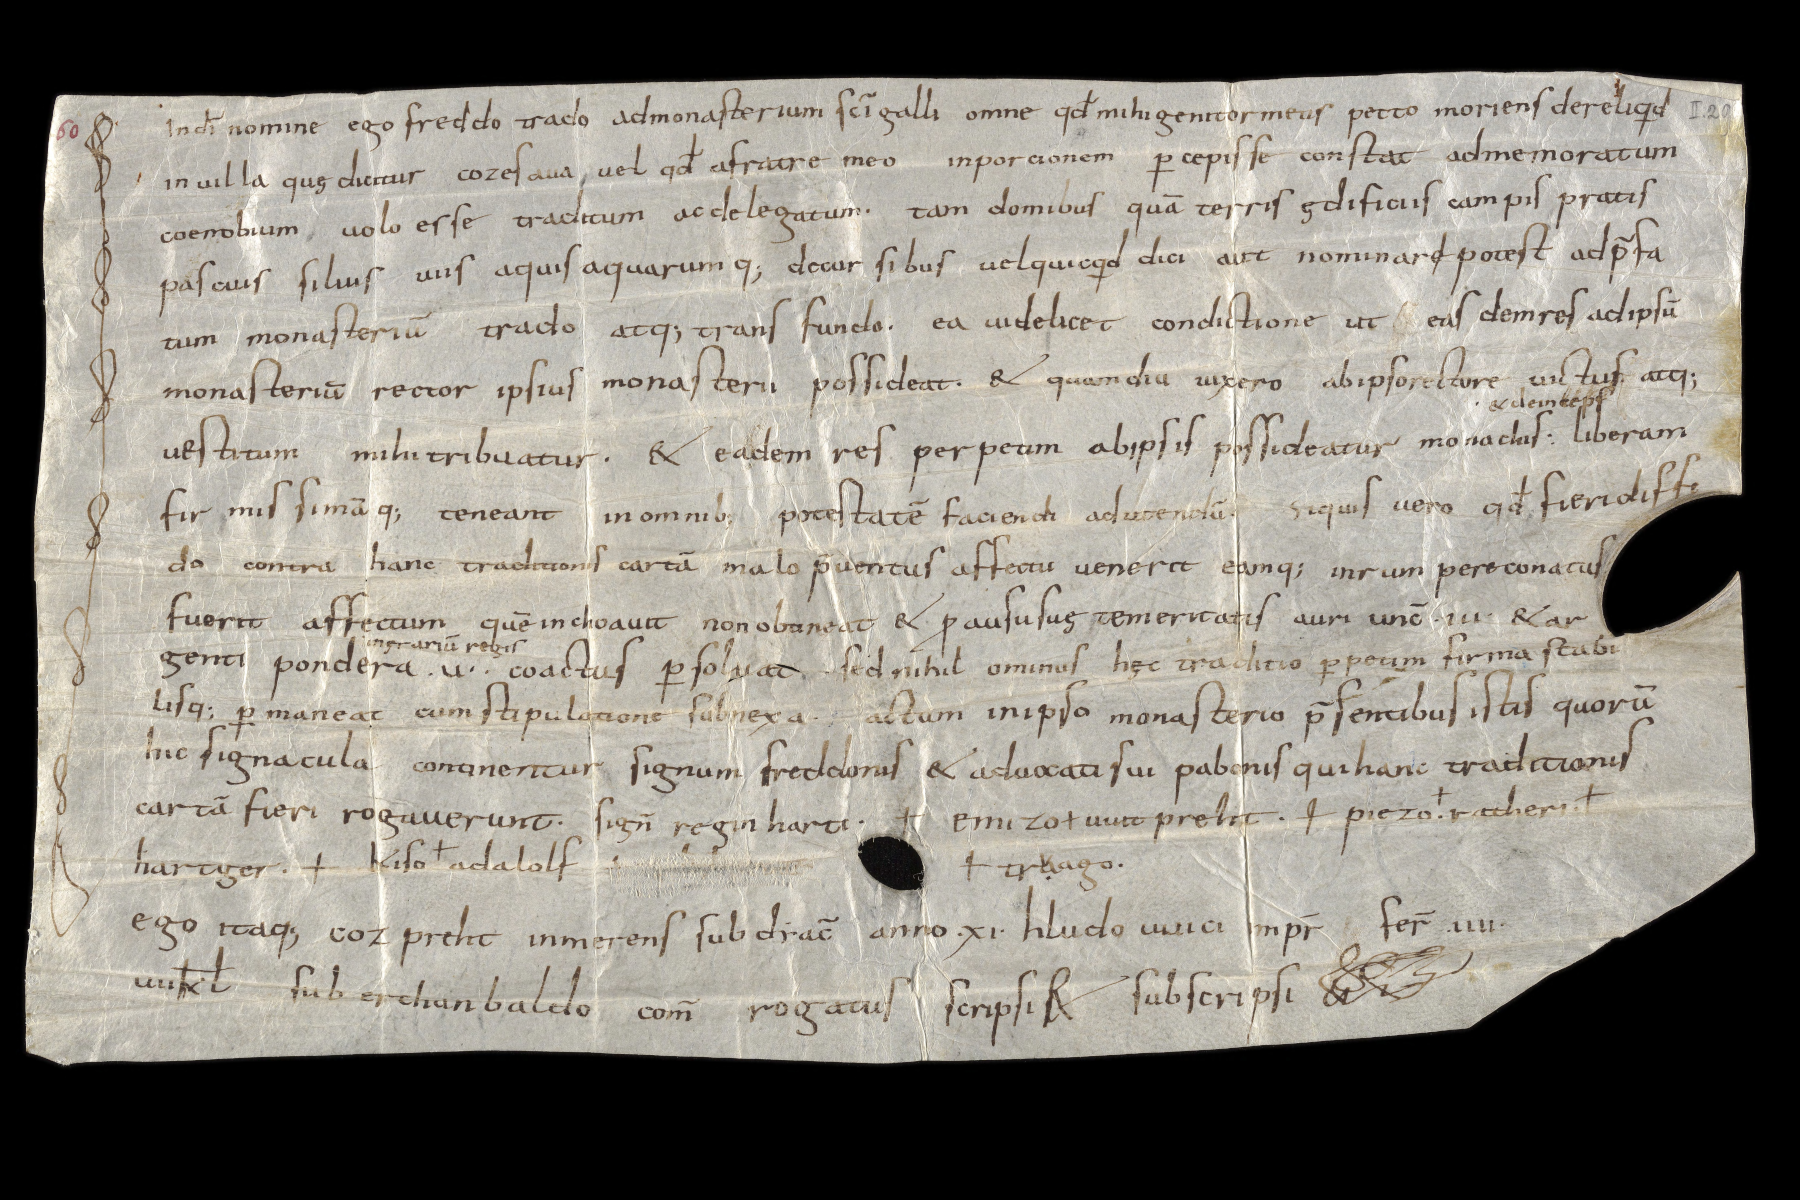 60
II. 20
In dī nomine ego freddo trado ad monasterium scī galli omne qđ mihi genitor meus petto moriens dereliqđ
in villa quę dicitur cozesaua vel qđ a fratre meo in porcionem p̱cepisse constat ad memoratum
coenobium volo esse traditum ac delegatum. tam domibus quā terris ędificiis campis pratis
pascuis siluis viis aquis aquarumq; decursibus vel quicqđ dici aut nominare potest ad p̄fa
tum monasteriū trado atq; transfundo. ea videlicet condictione ut easdem res ad ipsū
monasteriū rector ipsius monasterii possideat. & quamdiu vixero ab ipso rectore victus atq;
& deinceps
vestitum mihi tribuatur. & eadem res perpetim ab ipsis possideatur monachis: liberam
firmissimāq; teneant in omnib; potestatē faciendi ad utendū. Siquis vero qđ fieri diffi
do contra hanc traditionis cartā malo p̄ventus affectu venerit eamq; inrumpere conatus
fuerit affectum quē inchoavit non obtineat & p̱ ausu suę temeritatis auri unc̄ .iii. & ar
in ęrariū regis
genti pondera .v. coactus p̱solvat. sed nihilominus hęc traditio p̱petim firma stabi
lisq; p̱maneat cum stipulatione subnexa. actum in ipso monasterio p̄sentibus istis quorū
hic signacula continentur signum freddonis & advocati sui pabonis qui hanc traditionis
cartā fieri rogaverunt. sign̄ reginharti. + emizo + vvitpreht. + piezo. + ratheri +
hartger. + kiso + adalolf + trago.
ego itaq; cozpreht inmerens subdiac̄ anno .xi. hludovvici impr̄ fer̄ .iiii.
vii kł sub erchanbaldo com̄ rogatus scripsi & subscripsi